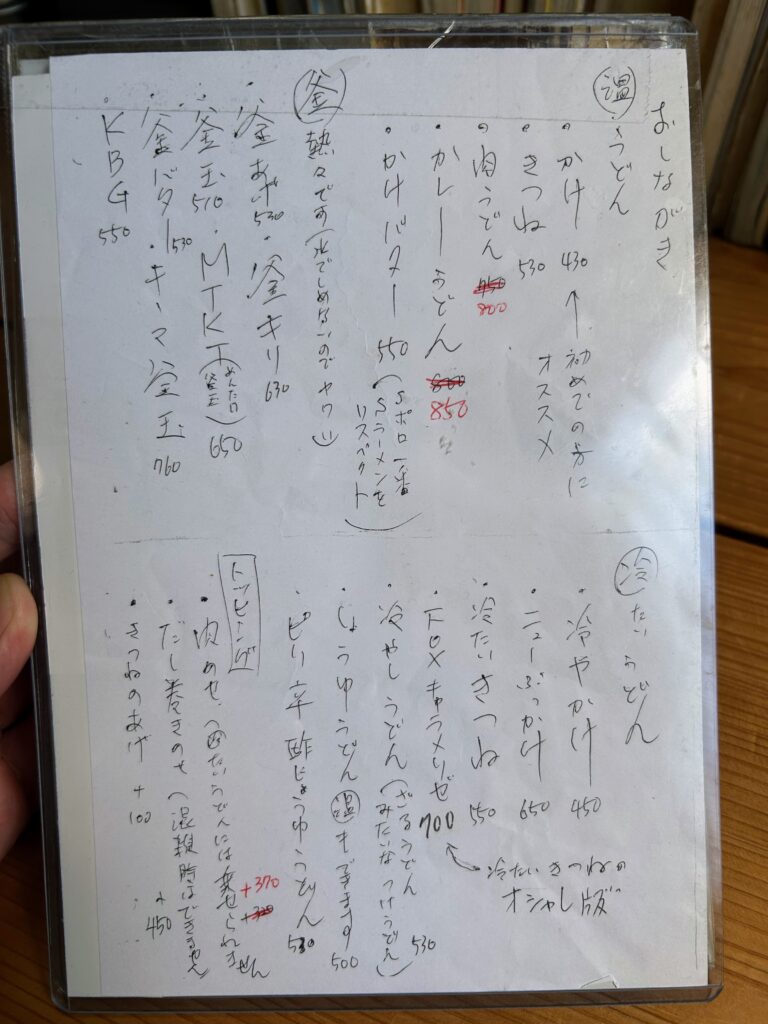 おしながき
温 うどん
・かけ 430 ← 初めての方に
オススメ
・きつね 530
・肉うどん 750 800
・カレーうどん 800 850
・かけバター 550 (Sポロ一番
Sラーメンを
リスペクト)
釜 熱々です(水でしめないので ヤワい)
・釜あげ 530 ・釜キリ 630
・釜玉 570 ・MTKT (めんたい釜玉) 650
・釜バター 530 ・キーマ釜玉 760
・KBG 550
冷 たいうどん
・冷やかけ 450
・ニューぶっかけ 650
・冷たいきつね 550
・FOXキャラメリゼ 700 ← 冷たいきつねの
オシャレ版
・冷やしうどん (ざるうどん
みたいなつけうどん) 530
・しょうゆうどん 温もできます 500
・ピリ辛酢じょうゆうどん 530
トッピング
・肉のせ (冷たいうどんには乗せられません +370
・だし巻きのせ (混雑時はできません) +450
・きつねのあげ +100